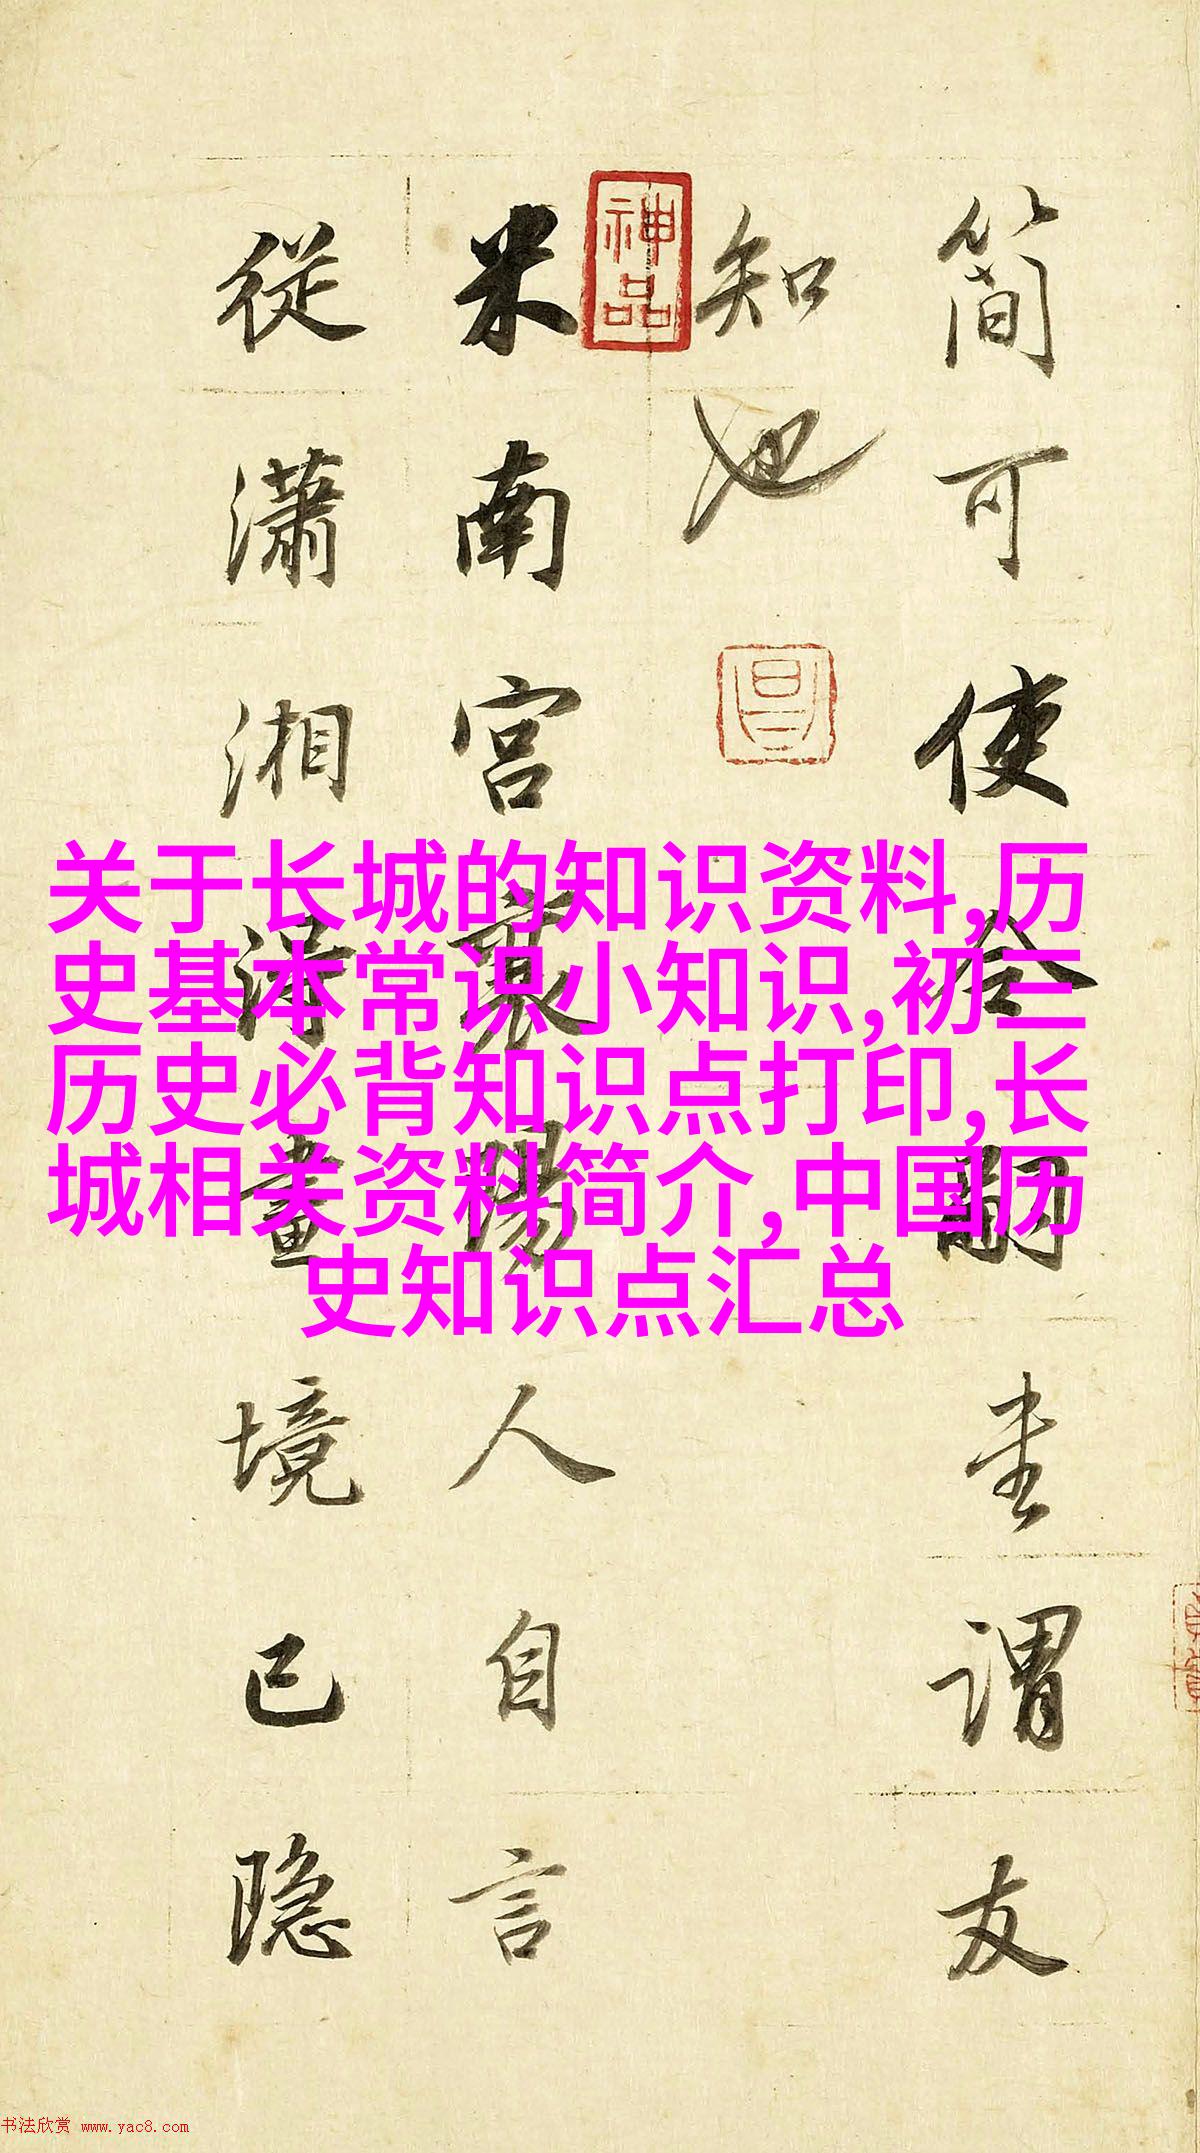 簡可使令嗣謂友
知也
神品
米南宮襄陽人自言
從瀟湘得畫境已隱
关于长城的知识资料,历
史基本常识小知识,初三
历史必背知识点打印,长
城相关资料简介,中国历
史知识点汇总
书法欣赏 www.yac8.com